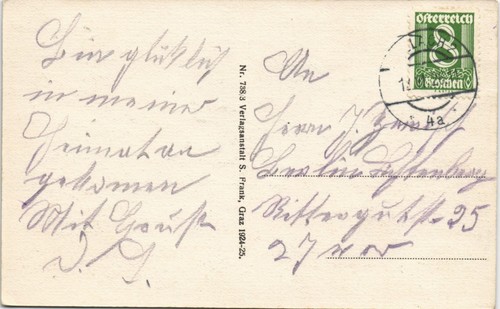 Bin glücklich
in meiner
Heimat an
gekommen
Mit Gruß
Nr. 738/3 Verlagsanstalt S. Frank, Graz 1924-25.
Österreich
8
Groschen
4a
An
Herrn J.
Berlin Lichtenberg
Rittergutstr 25